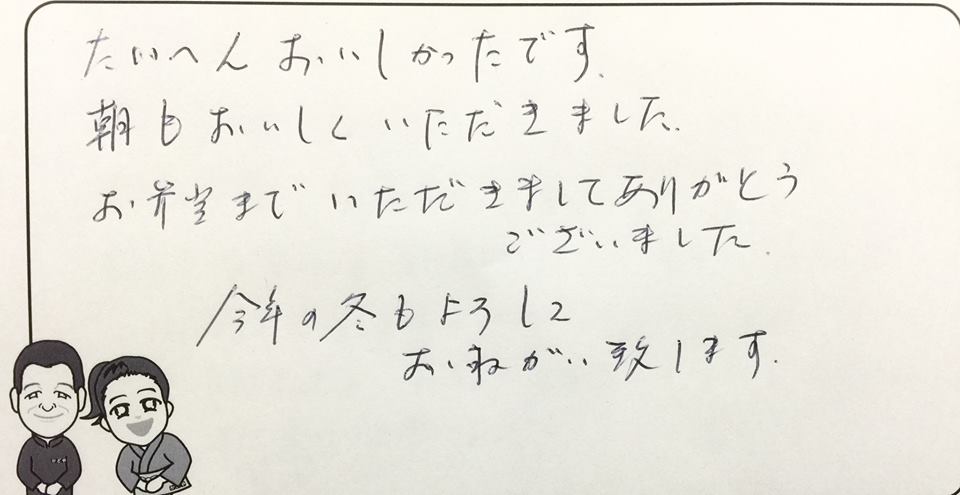 たいへん おいしかったです。
朝もおいしく いただきました。
お弁当まで いただきましてありがとう
ございました。
今年の冬もよろしく
おねがい致します。